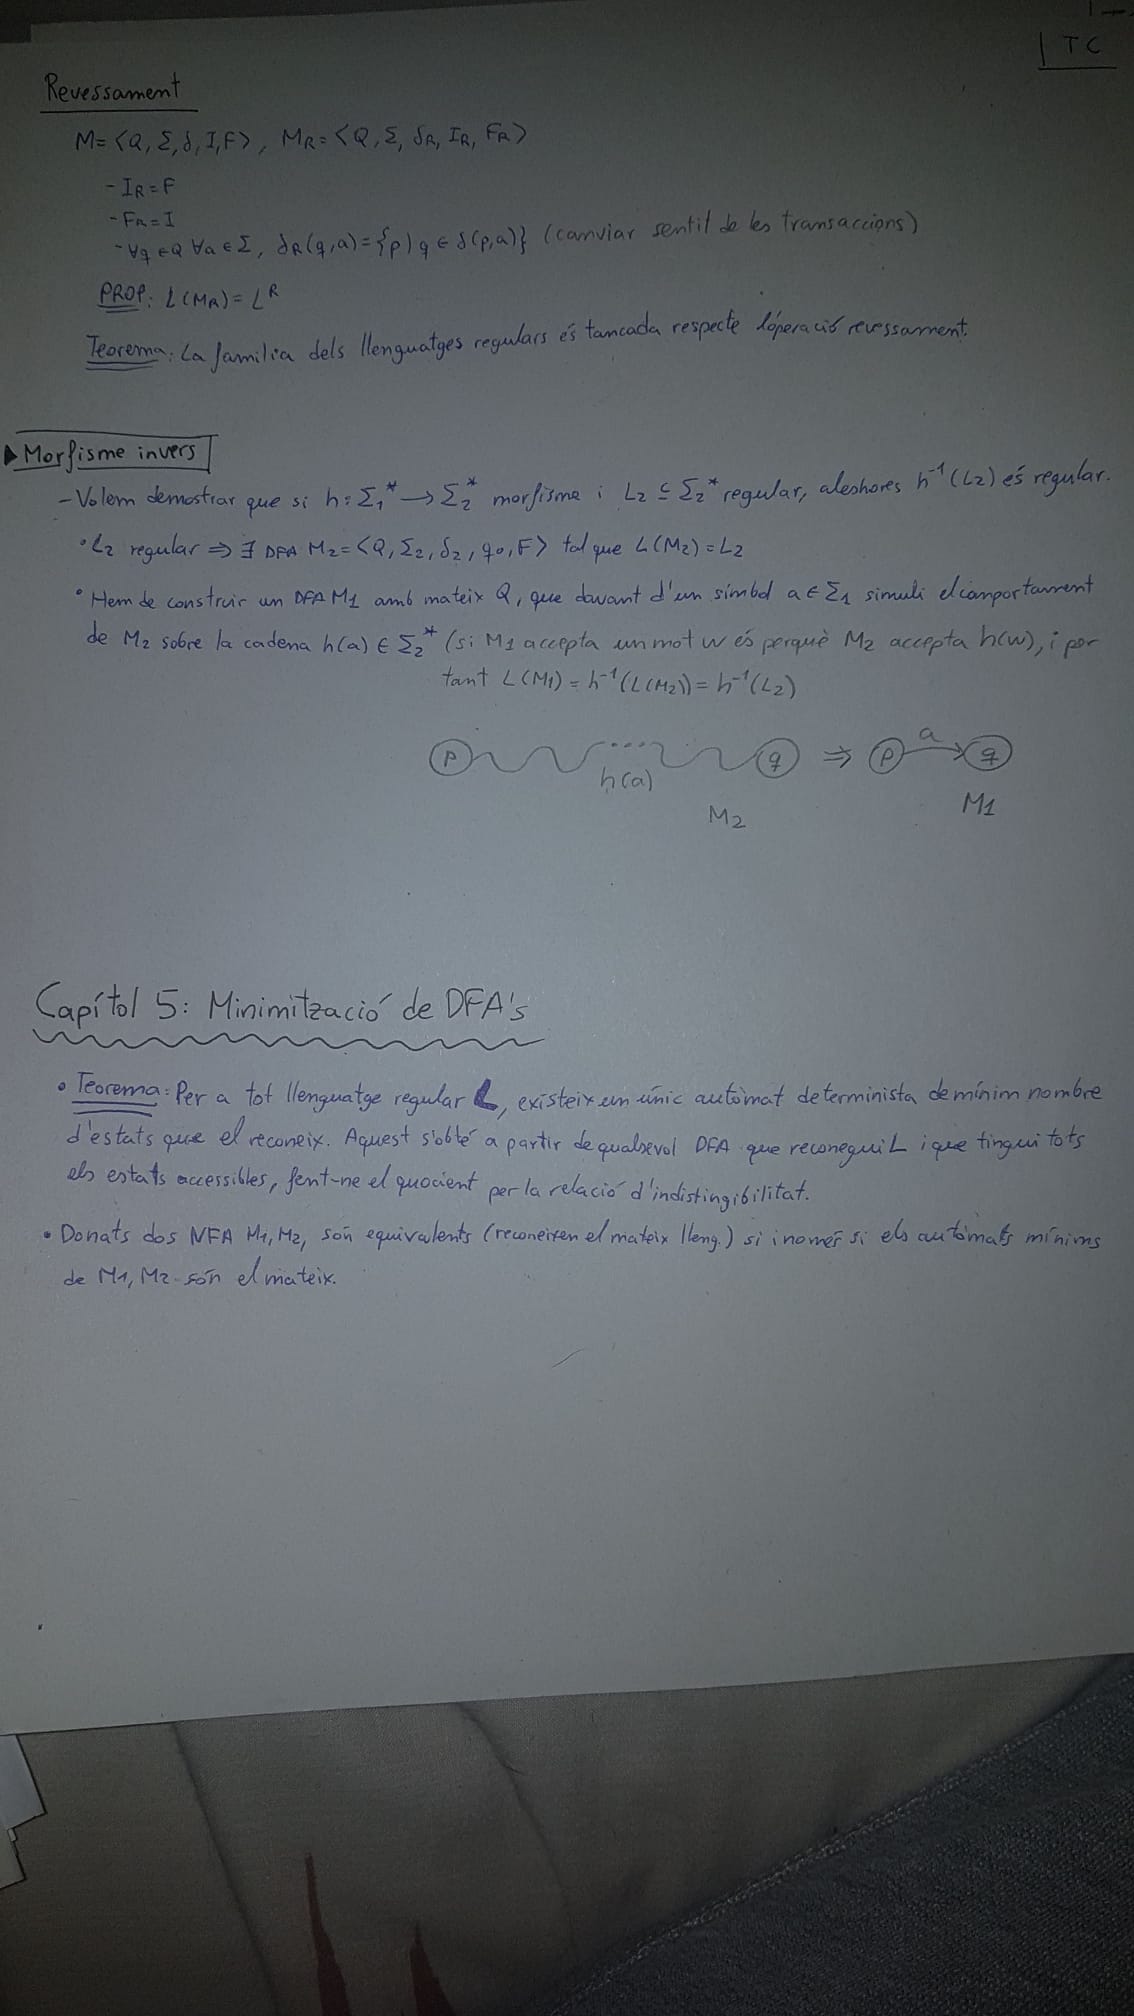 TC
Revessament
M=<Q, Σ, δ, I, F>, MR=<Q, Σ, δR, IR, FR>
- IR=F
- FR=I
- ∀q∈Q ∀a∈Σ, δR(q,a)={p | q ∈ δ(p,a)} (canviar sentit de les transaccions)
PROP: L(MR)=L^R
Teorema: La familia dels llenguatges regulars és tancada respecte l'operació revessament.
▶ Morfisme invers
- Volem demostrar que si h: Σ1* → Σ2* morfisme i L2 ⊆ Σ2* regular, aleshores h⁻¹(L2) és regular.
• L2 regular ⇒ ∃ DFA M2=<Q, Σ2, δ2, q0, F> tal que L(M2)=L2
• Hem de construir un DFA M1 amb mateix Q, que davant d'un símbol a∈Σ1 simuli el comportament
de M2 sobre la cadena h(a) ∈ Σ2* (si M1 accepta un mot w és perquè M2 accepta h(w), i per
tant L(M1) = h⁻¹(L(M2)) = h⁻¹(L2)
p ... q ⇒ p a q
h(a)
M2 M1
Capítol 5: Minimització de DFA's
• Teorema: Per a tot llenguatge regular L, existeix un únic autòmat determinista de mínim nombre
d'estats que el reconeix. Aquest s'obté a partir de qualsevol DFA que reconegui L i que tingui tots
els estats accessibles, fent-ne el quocient per la relació d'indistingibilitat.
• Donats dos NFA M1, M2, són equivalents (reconeixen el mateix lleng.) si i només si els autòmats mínims
de M1, M2 són el mateix.